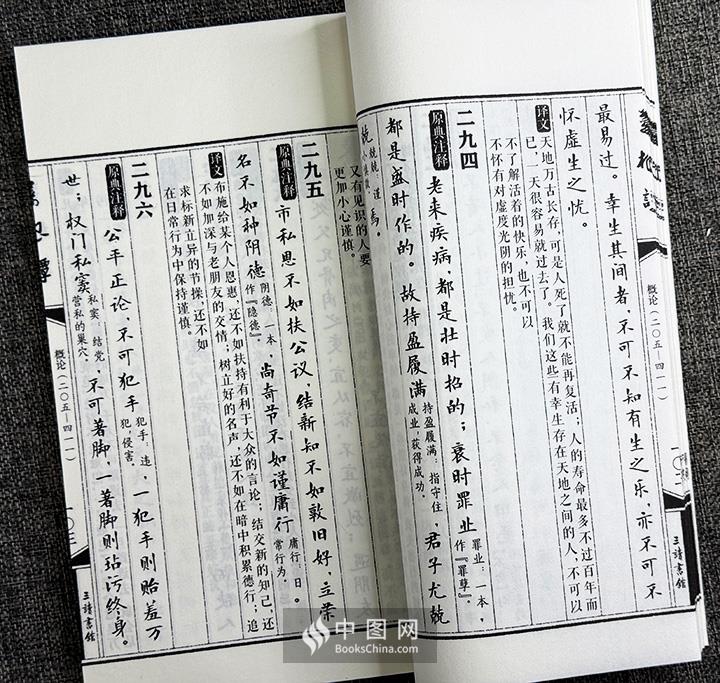 最易过。幸生其间者,不可不知有生之乐,亦不可不
怀虚生之忧。
译文 天地万古长存,可是人死了就不能再复活;人的寿命最多不过百年而
已,一天很容易就过去了。我们这些有幸生存在天地之间的人,不可以
不了解活着的快乐,也不可以
不怀有对虚度光阴的担忧。
二九四
原典注释 老来疾病,都是壮时招的;衰时罪业 罪业:一本,作『罪孽』。
都是盛时作的。故持盈履满 持盈履满:指守住,成业,获得成功。 君子尤兢
兢
概论(二〇五—四一一)
又有见识的人要
更加小心谨慎。
二九五
原典注释 市私恩不如扶公议,结新知不如敦旧好,立荣
名不如种阴德 阴德:一本,作『隐德』。 尚奇节不如谨庸行 庸行:日,常行为。
译文 布施给某个人恩惠,还不如扶持有利于大众的言论;结交新的知己,还
不如加深与老朋友的交情;树立好的名声,还不如在暗中积累德行;追
求标新立异的节操,还不如
在日常行为中保持谨慎。
二九六
原典注释 公平正论,不可犯手 犯手:违,犯,侵害。 一犯手则贻羞万
世;权门私窦 私窦:结党,营私的巢穴。 不可著脚,一著脚则玷污终身。
概论(二〇五—四一一)
一〇三
三读书馆
三读书馆
中图网
BooksChina.com